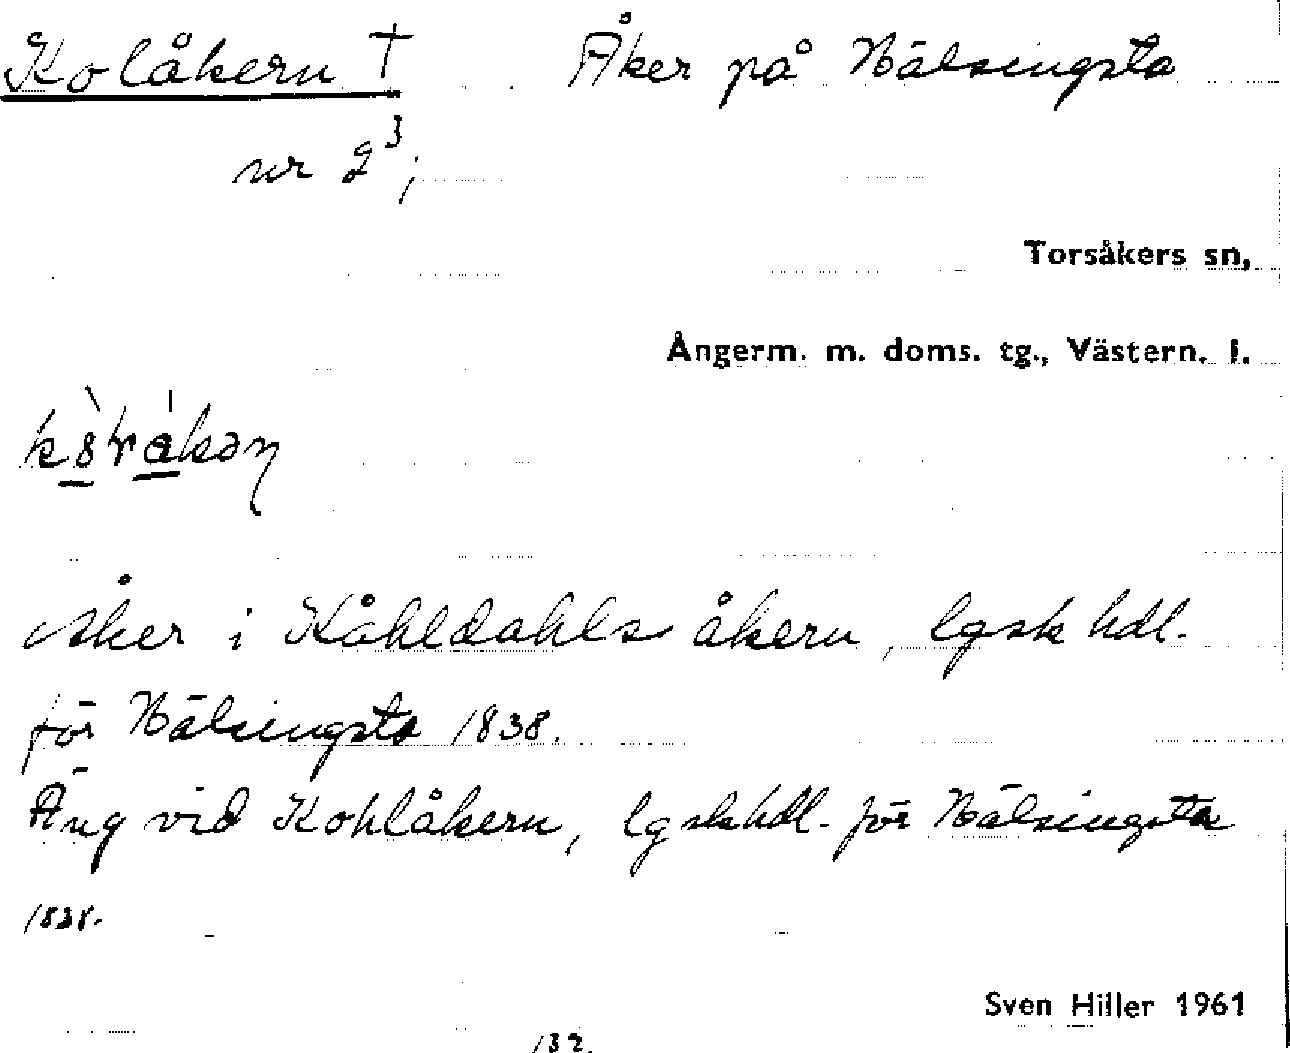 Kolåkern † Åker på Hälsingsta
nr 2³;
Torsåkers sn,
Ångerm. m. doms. tg., Västern. l.
Åker i Kåhldahls åkern, lgsk hdl.
för Hälsingsta 1838.
Äng vid Kohlåkern, lgskhdl. för Hälsingsta
1838.
Sven Hiller 1961
132.